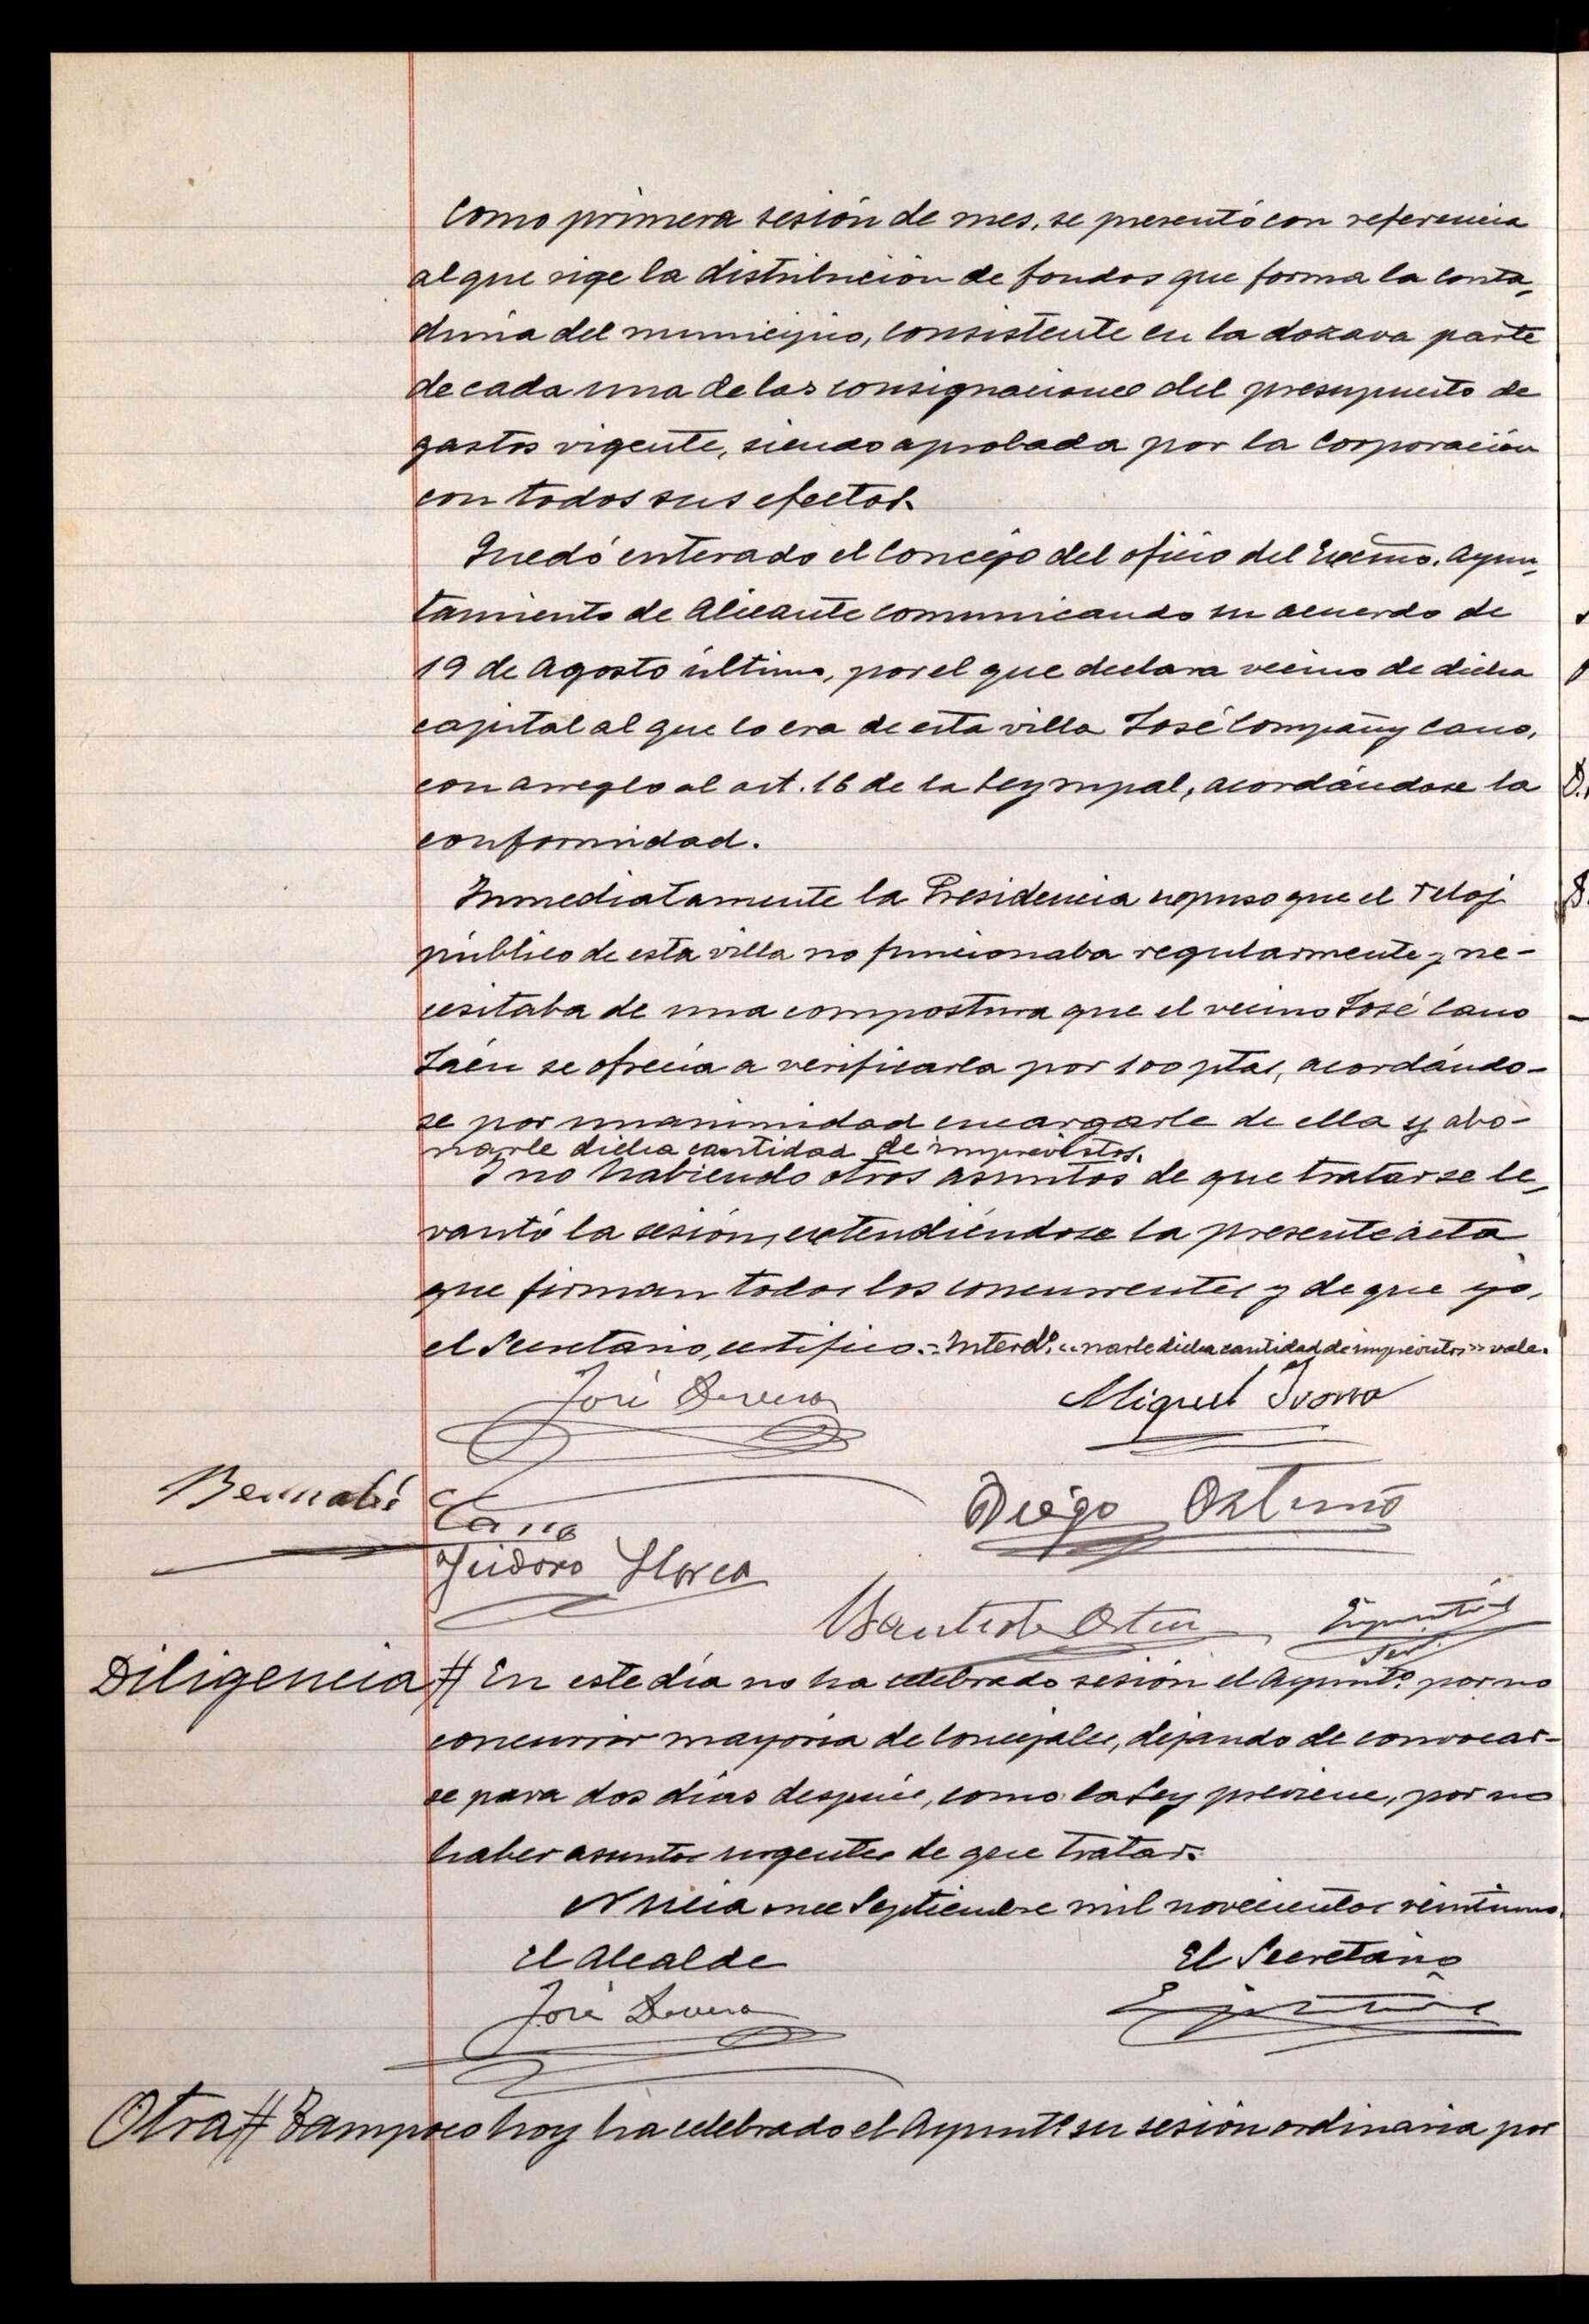 Como primera sesión de mes, se presentó con referencia
al que rige la distribución de fondos que forma la conta-
duría del municipio, consistente en la dozava parte
de cada una de las consignaciones del presupuesto de
gastos vigente, siendo aprobada por la Corporación
con todos sus efectos.
Quedó enterado el Concejo del oficio del Excmo. Ayun-
tamiento de Alicante comunicando su acuerdo de
19 de Agosto último, por el que declara vecino de dicha
capital al que lo era de esta villa José Compañy Cano,
con arreglo al art. 16 de la Ley mpal, acordándose la
conformidad.
Inmediatamente la Presidencia expuso que el reloj
público de esta villa no funcionaba regularmente y ne-
cesitaba de una compostura que el vecino José Cano
Jaén se ofrecía a verificarla por 100 ptas, acordándo-
se por unanimidad encargarle de ella y abo-
narle dicha cantidad de imprevistos.
Y no habiendo otros asuntos de que tratar se le-
vantó la sesión, extendiéndose la presente acta
que firman todos los concurrentes y de que yo,
el Secretario, certifico.- Interdº. "narle dicha cantidad de imprevistos" vale.
José Devesa Miguel Ivorra
Bernabé Cano Diego Ortuño
Isidoro Llorca
Bautista
Diligencia # En este día no ha celebrado sesión el Ayuntº. por no
concurrir mayoría de Concejales, dejando de convocar-
se para dos días después, como la Ley previene, por no
haber asuntos urgentes de que tratar.
Nucia once Septiembre mil novecientos veintiuno.
El Alcalde El Secretario
José Devesa
Otra # Tampoco hoy ha celebrado el Ayuntº. su sesión ordinaria por